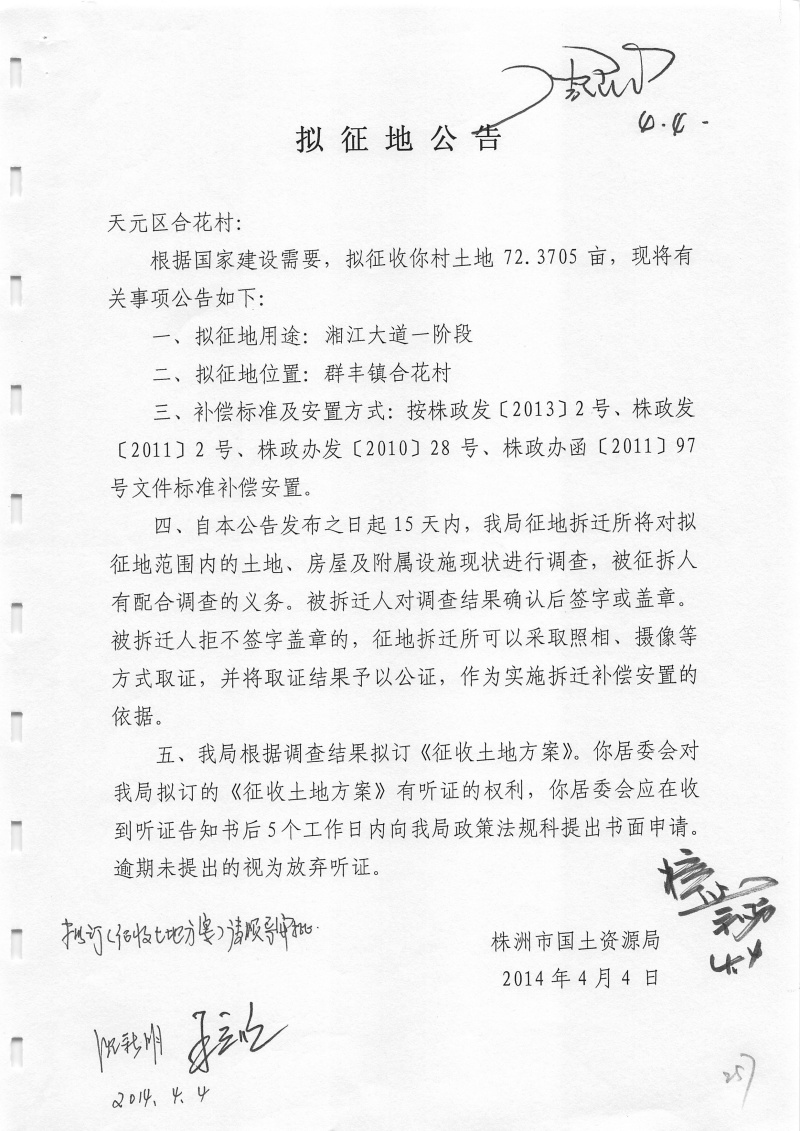 4.4.
拟征地公告
天元区合花村：
根据国家建设需要，拟征收你村土地 72.3705 亩，现将有
关事项公告如下：
一、拟征地用途：湘江大道一阶段
二、拟征地位置：群丰镇合花村
三、补偿标准及安置方式：按株政发〔2013〕2 号、株政发
〔2011〕2 号、株政办发〔2010〕28 号、株政办函〔2011〕97
号文件标准补偿安置。
四、自本公告发布之日起 15 天内，我局征地拆迁所将对拟
征地范围内的土地、房屋及附属设施现状进行调查，被征拆人
有配合调查的义务。被拆迁人对调查结果确认后签字或盖章。
被拆迁人拒不签字盖章的，征地拆迁所可以采取照相、摄像等
方式取证，并将取证结果予以公证，作为实施拆迁补偿安置的
依据。
五、我局根据调查结果拟订《征收土地方案》。你居委会对
我局拟订的《征收土地方案》有听证的权利，你居委会应在收
到听证告知书后 5 个工作日内向我局政策法规科提出书面申请。
逾期未提出的视为放弃听证。
拟订《征收土地方案》请领导审批.
4.4
株洲市国土资源局
2014 年 4 月 4 日
2014.4.4
257